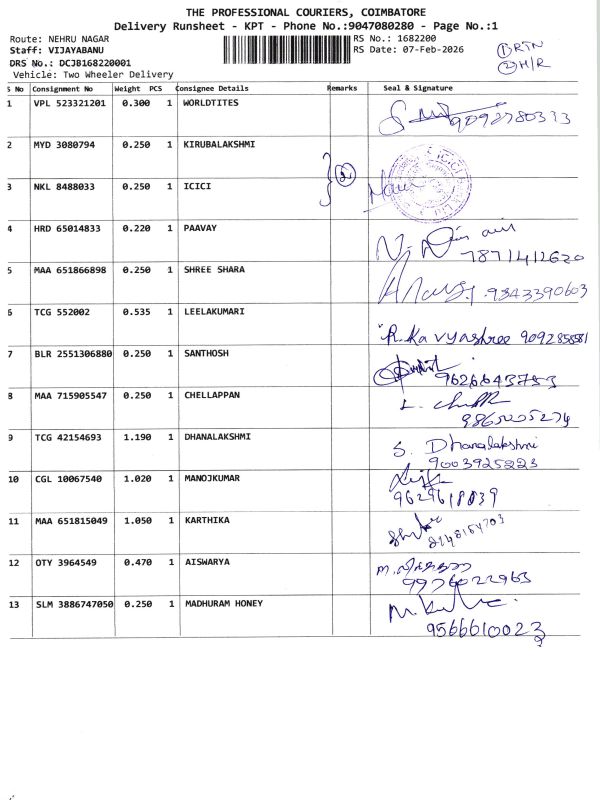 THE PROFESSIONAL COURIERS, COIMBATORE
Delivery Runsheet - KPT - Phone No.:9047080280 - Page No.:1
Route: NEHRU NAGAR
Staff: VIJAYABANU
DRS No.: DCJB168220001
Vehicle: Two Wheeler Delivery
RS No.: 1682200
RS Date: 07-Feb-2026
① RTN
② H/R
S No Consignment No Weight PCS Consignee Details Remarks Seal & Signature
1 VPL 523321201 0.300 1 WORLDTITES
2 MYD 3080794 0.250 1 KIRUBALAKSHMI
②
3 NKL 8488033 0.250 1 ICICI
4 HRD 65014833 0.220 1 PAAVAY
7871412620
5 MAA 651866898 0.250 1 SHREE SHARA
9843390603
6 TCG 552002 0.535 1 LEELAKUMARI
R.Kavyashree 9092858581
7 BLR 2551306880 0.250 1 SANTHOSH
9626643753
8 MAA 715905547 0.250 1 CHELLAPPAN
9865205274
9 TCG 42154693 1.190 1 DHANALAKSHMI
S. Dhanalakshmi
9003925223
10 CGL 10067540 1.020 1 MANOJKUMAR
9629618039
11 MAA 651815049 1.050 1 KARTHIKA
12 OTY 3964549 0.470 1 AISWARYA
9976022963
13 SLM 3886747050 0.250 1 MADHURAM HONEY
9566610023